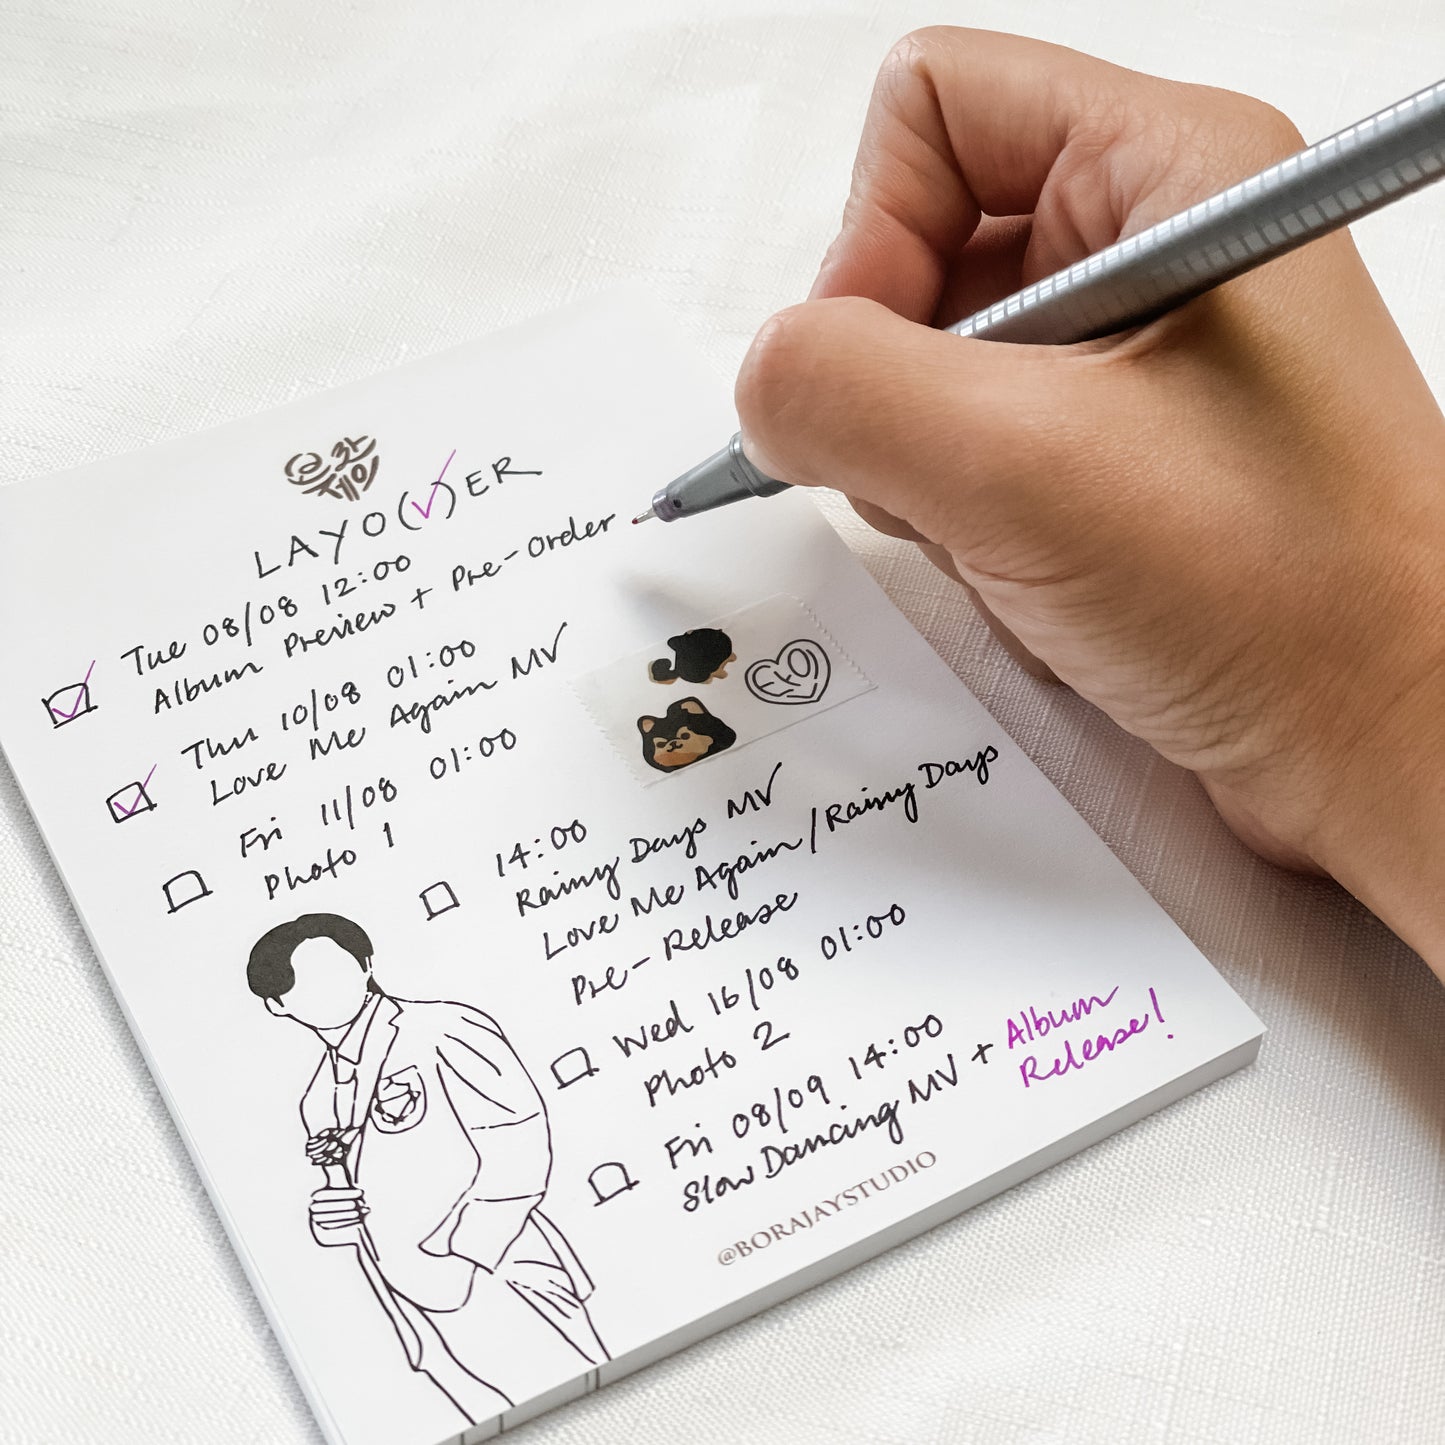 LAYO(V)ER
Tue 08/08 12:00
Album Preview + Pre-Order
Thu 10/08 01:00
Love Me Again MV
Fri 11/08 01:00
Photo 1
14:00
Rainy Days MV
Love Me Again / Rainy Days
Pre-Release
Wed 16/08 01:00
Photo 2
Fri 08/09 14:00
Slow Dancing MV + Album
Release!
@BORAJAYSTUDIO